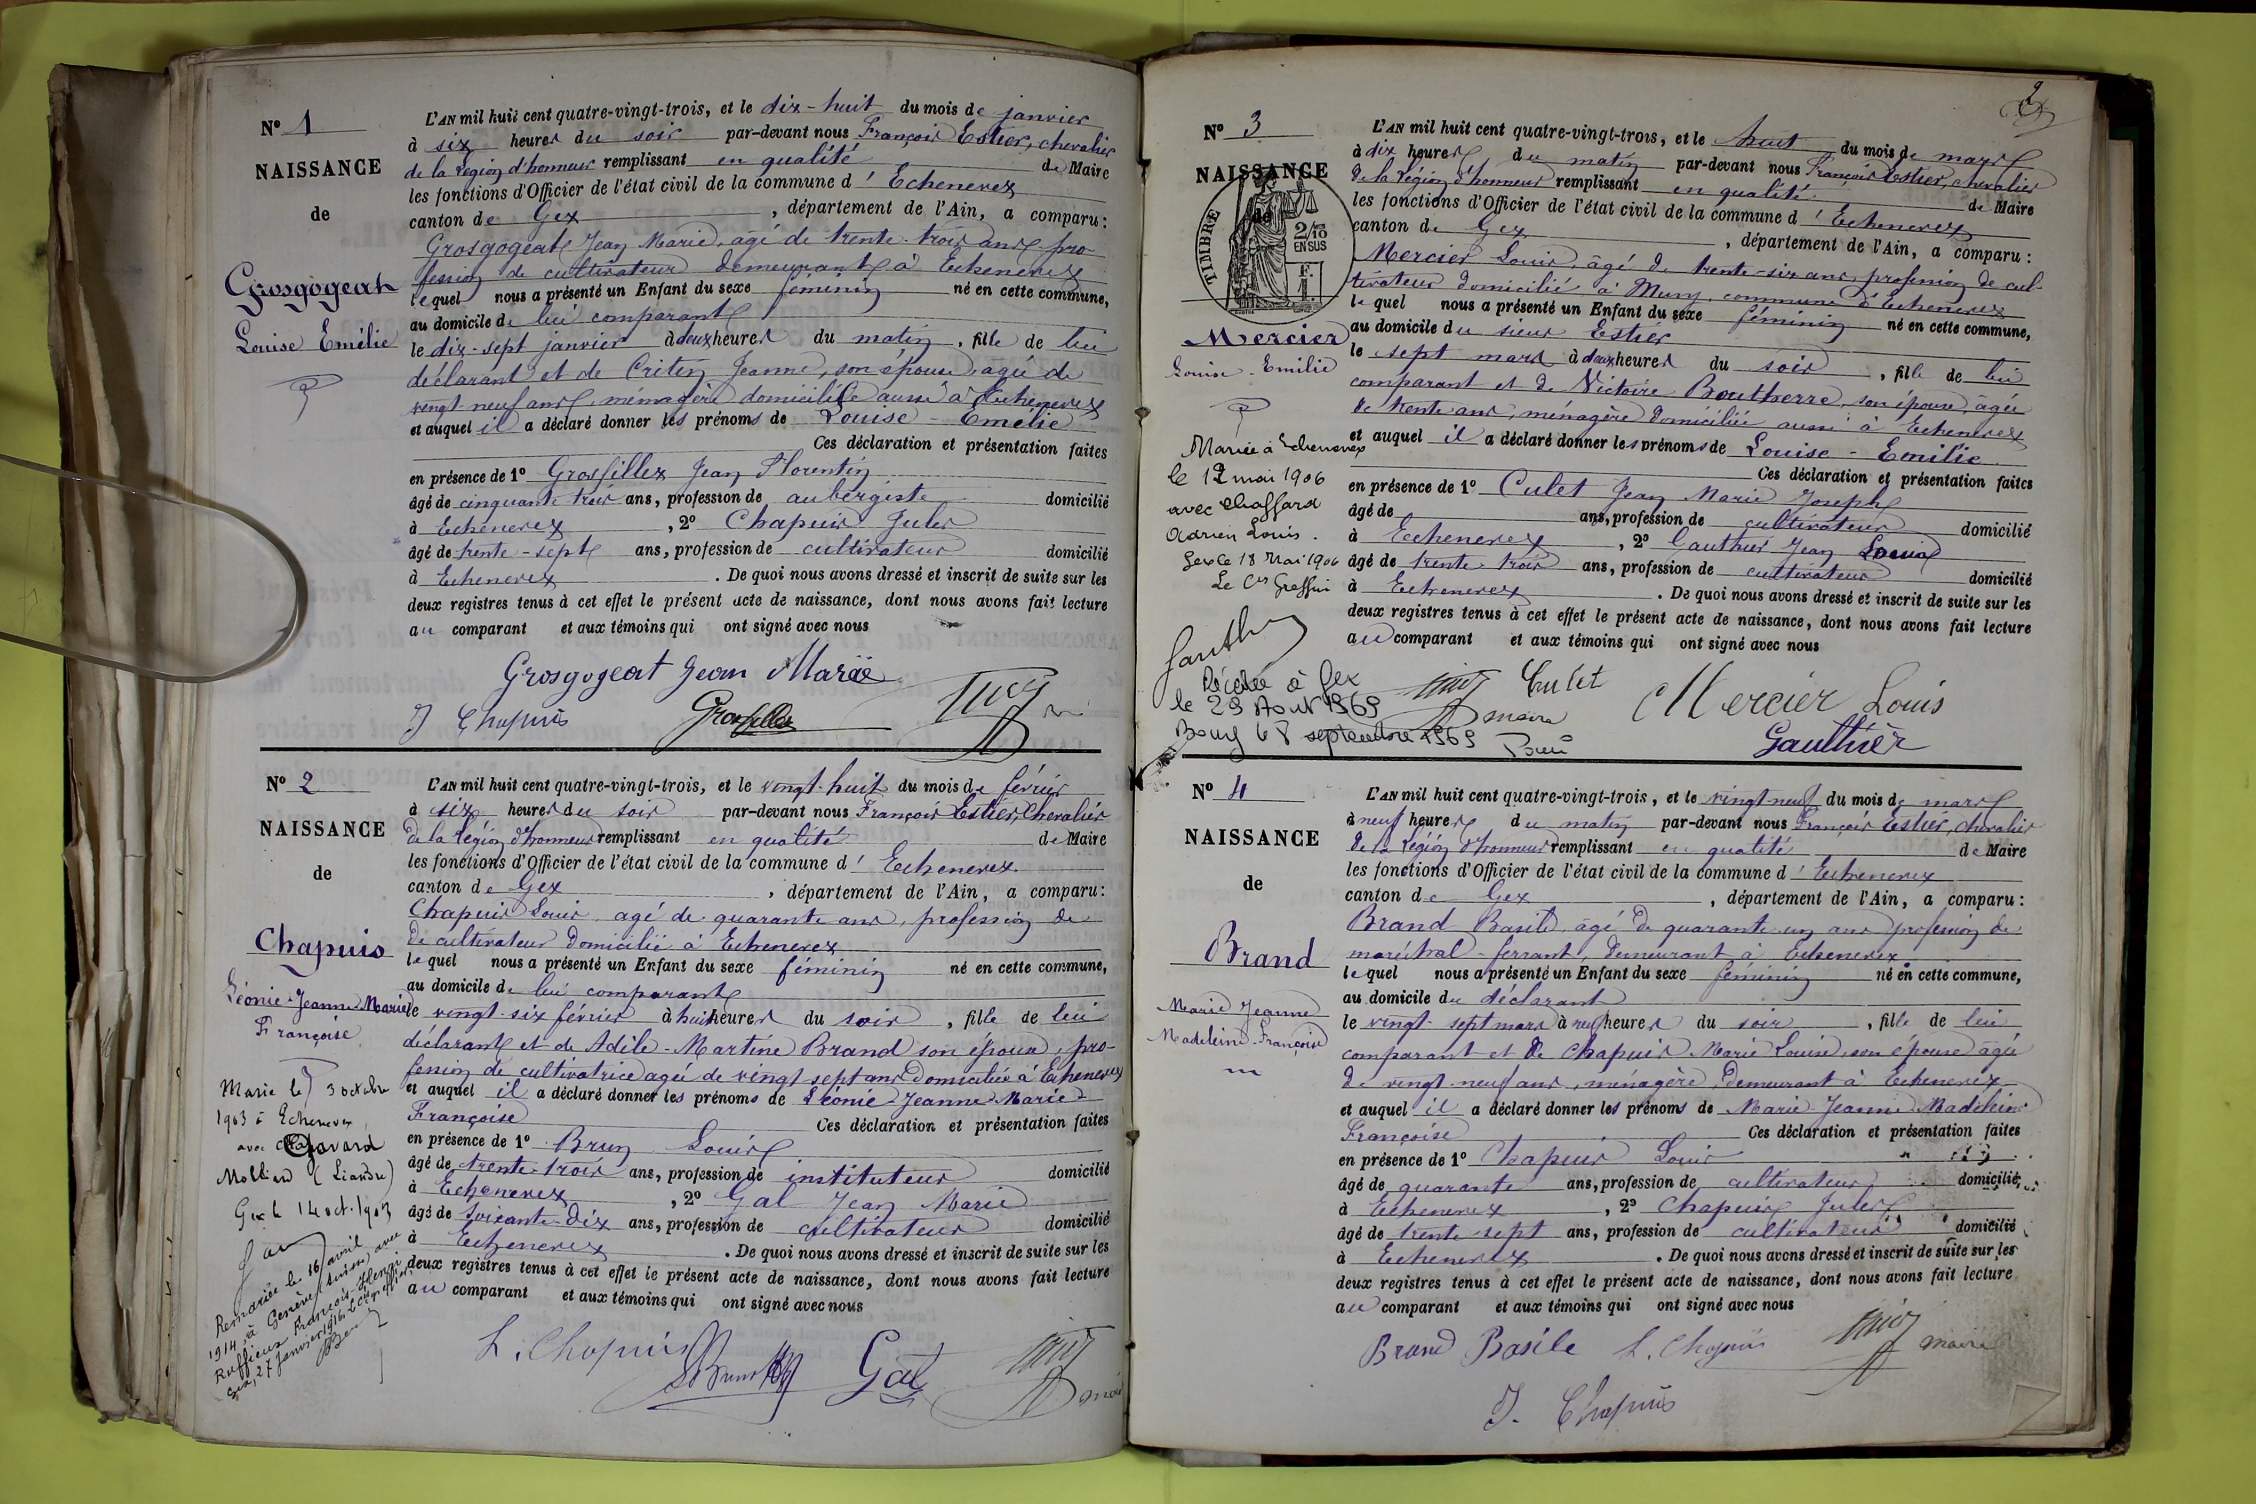 N° 1
NAISSANCE
de
Grosgogeat
Louise Emélie
L'AN mil huit cent quatre-vingt-trois, et le dix-huit du mois de janvier
à six heures du soir par-devant nous François Estier, chevalier
de la Légion d'honneur remplissant en qualité de Maire
les fonctions d'Officier de l'état civil de la commune d'Echenevex
canton de Gex, département de l'Ain, a comparu:
Grosgogeat Jean Marie, âgé de trente-trois ans, pro-
fession de cultivateur demeurant à Echenevex
lequel nous a présenté un Enfant du sexe féminin né en cette commune,
au domicile de lui comparant
le dix-sept janvier à deux heures du matin, fille de lui
déclarant et de Critin Jeanne, son épouse, agée de
vingt-neuf ans, ménagère domiciliée aussi à Echenevex
et auquel il a déclaré donner les prénoms de Louise-Emélie
Ces déclaration et présentation faites
en présence de 1° Grosfillex Jean Florentin
âgé de cinquante trois ans, profession de aubergiste domicilié
à Echenevex, 2° Chapuis Jules
âgé de trente-sept ans, profession de cultivateur domicilié
à Echenevex. De quoi nous avons dressé et inscrit de suite sur les
deux registres tenus à cet effet le présent acte de naissance, dont nous avons fait lecture
au comparant et aux témoins qui ont signé avec nous
Grosgogeat Jean Marie
J Chapuis Grosfillex
N° 2
NAISSANCE
de
Chapuis
Léonie-Jeanne-Marie
Françoise
Marié le 3 octobre
1903 à Echenevex
avec
Molliard (Liandre)
Gex le 14 oct. 1903
Remariée le 16 avril
1914, à Genève (Suisse), avec
Ruffieux François-Henri
Gex, 27 janvier 1916. Le greffier,
L'AN mil huit cent quatre-vingt-trois, et le vingt-huit du mois de février
à six heures du soir par-devant nous François Estier, Chevalier
de la Légion d'honneur remplissant en qualité de Maire
les fonctions d'Officier de l'état civil de la commune d'Echenevex
canton de Gex, département de l'Ain, a comparu:
Chapuis Louis agé de quarante ans, profession de
de cultivateur domicilié à Echenevex
lequel nous a présenté un Enfant du sexe féminin né en cette commune,
au domicile de lui comparant
le vingt-six février à huit heures du soir, fille de lui
déclarant et de Adèle-Martine Brand son épouse, pro-
fession de cultivatrice agée de vingt sept ans domiciliée à Echenevex
et auquel il a déclaré donner les prénoms de Léonie-Jeanne-Marie
Françoise Ces déclaration et présentation faites
en présence de 1° Brun Louis
âgé de trente-trois ans, profession de instituteur domicilié
à Echenevex, 2° Gal Jean Marie
âgé de soixante-dix ans, profession de cultivateur domicilié
à Echenevex. De quoi nous avons dressé et inscrit de suite sur les
deux registres tenus à cet effet le présent acte de naissance, dont nous avons fait lecture
au comparant et aux témoins qui ont signé avec nous
L. Chapuis Gal
2
N° 3
NAISSANCE
de
TIMBRE
2/10
EN SUS
F.
Mercier
Louise-Emilie
Mariée à Echenevex
le 12 mai 1906
avec Chaffard
Adrien Louis.
Gex le 18 Mai 1906
Le Cis Greffier
Décédée à Gex
le 29 Août 1969
Bourg le 8 septembre 1969
L'AN mil huit cent quatre-vingt-trois, et le huit du mois de mars
à dix heures du matin par-devant nous François Estier, chevalier
de la Légion d'honneur remplissant en qualité de Maire
les fonctions d'Officier de l'état civil de la commune d'Echenevex
canton de Gex, département de l'Ain, a comparu:
Mercier Louis, âgé de trente-six ans, profession de cul-
tivateur domicilié à Mury, commune d'Echenevex
lequel nous a présenté un Enfant du sexe féminin né en cette commune,
au domicile du sieur Estier
le sept mars à deux heures du soir, fille de lui
comparant et de Victoire Boutherre, son épouse, âgée
de trente ans, ménagère domiciliée aussi à Echenevex
et auquel il a déclaré donner les prénoms de Louise-Emilie
Ces déclaration et présentation faites
en présence de 1° Culet Jean Marie Joseph
âgé de ans, profession de cultivateur domicilié
à Echenevex, 2° Gauthier Jean Louis
âgé de trente-trois ans, profession de cultivateur domicilié
à Echenevex. De quoi nous avons dressé et inscrit de suite sur les
deux registres tenus à cet effet le présent acte de naissance, dont nous avons fait lecture
au comparant et aux témoins qui ont signé avec nous
maire Culet Mercier Louis
Gaulthier
N° 4
NAISSANCE
de
Brand
Marie Jeanne
Madeleine-Françoise
L'AN mil huit cent quatre-vingt-trois, et le vingt-neuf du mois de mars
à neuf heures du matin par-devant nous François Estier, chevalier
de la Légion d'honneur remplissant en qualité de Maire
les fonctions d'Officier de l'état civil de la commune d'Echenevex
canton de Gex, département de l'Ain, a comparu:
Brand Basile, âgé de quarante-un ans profession de
maréchal-ferrant, demeurant à Echenevex
lequel nous a présenté un Enfant du sexe féminin né en cette commune,
au domicile du déclarant
le vingt-sept mars à neuf heures du soir, fille de lui
comparant et de Chapuis Marie Louise, son épouse âgée
de vingt-neuf ans, ménagère, demeurant à Echenevex
et auquel il a déclaré donner les prénoms de Marie-Jeanne-Madeleine
Françoise Ces déclaration et présentation faites
en présence de 1° Chapuis Louis
âgé de quarante ans, profession de cultivateur domicilié
à Echenevex, 2° Chapuis Jules
âgé de trente-sept ans, profession de cultivateur domicilié
à Echenevex. De quoi nous avons dressé et inscrit de suite sur les
deux registres tenus à cet effet le présent acte de naissance, dont nous avons fait lecture
au comparant et aux témoins qui ont signé avec nous
Brand Basile L. Chapuis maire
J. Chapuis